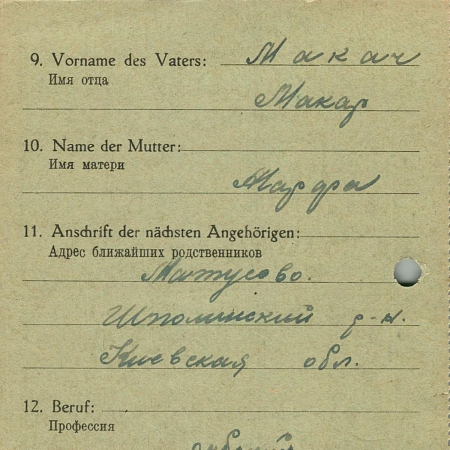 9. Vorname des Vaters: Макач
Имя отца
Макар
10. Name der Mutter:
Имя матери
Марфа
11. Anschrift der nächsten Angehörigen:
Адрес ближайших родственников
Матусово.
Шполянский р-н.
Киевская обл.
12. Beruf:
Профессия